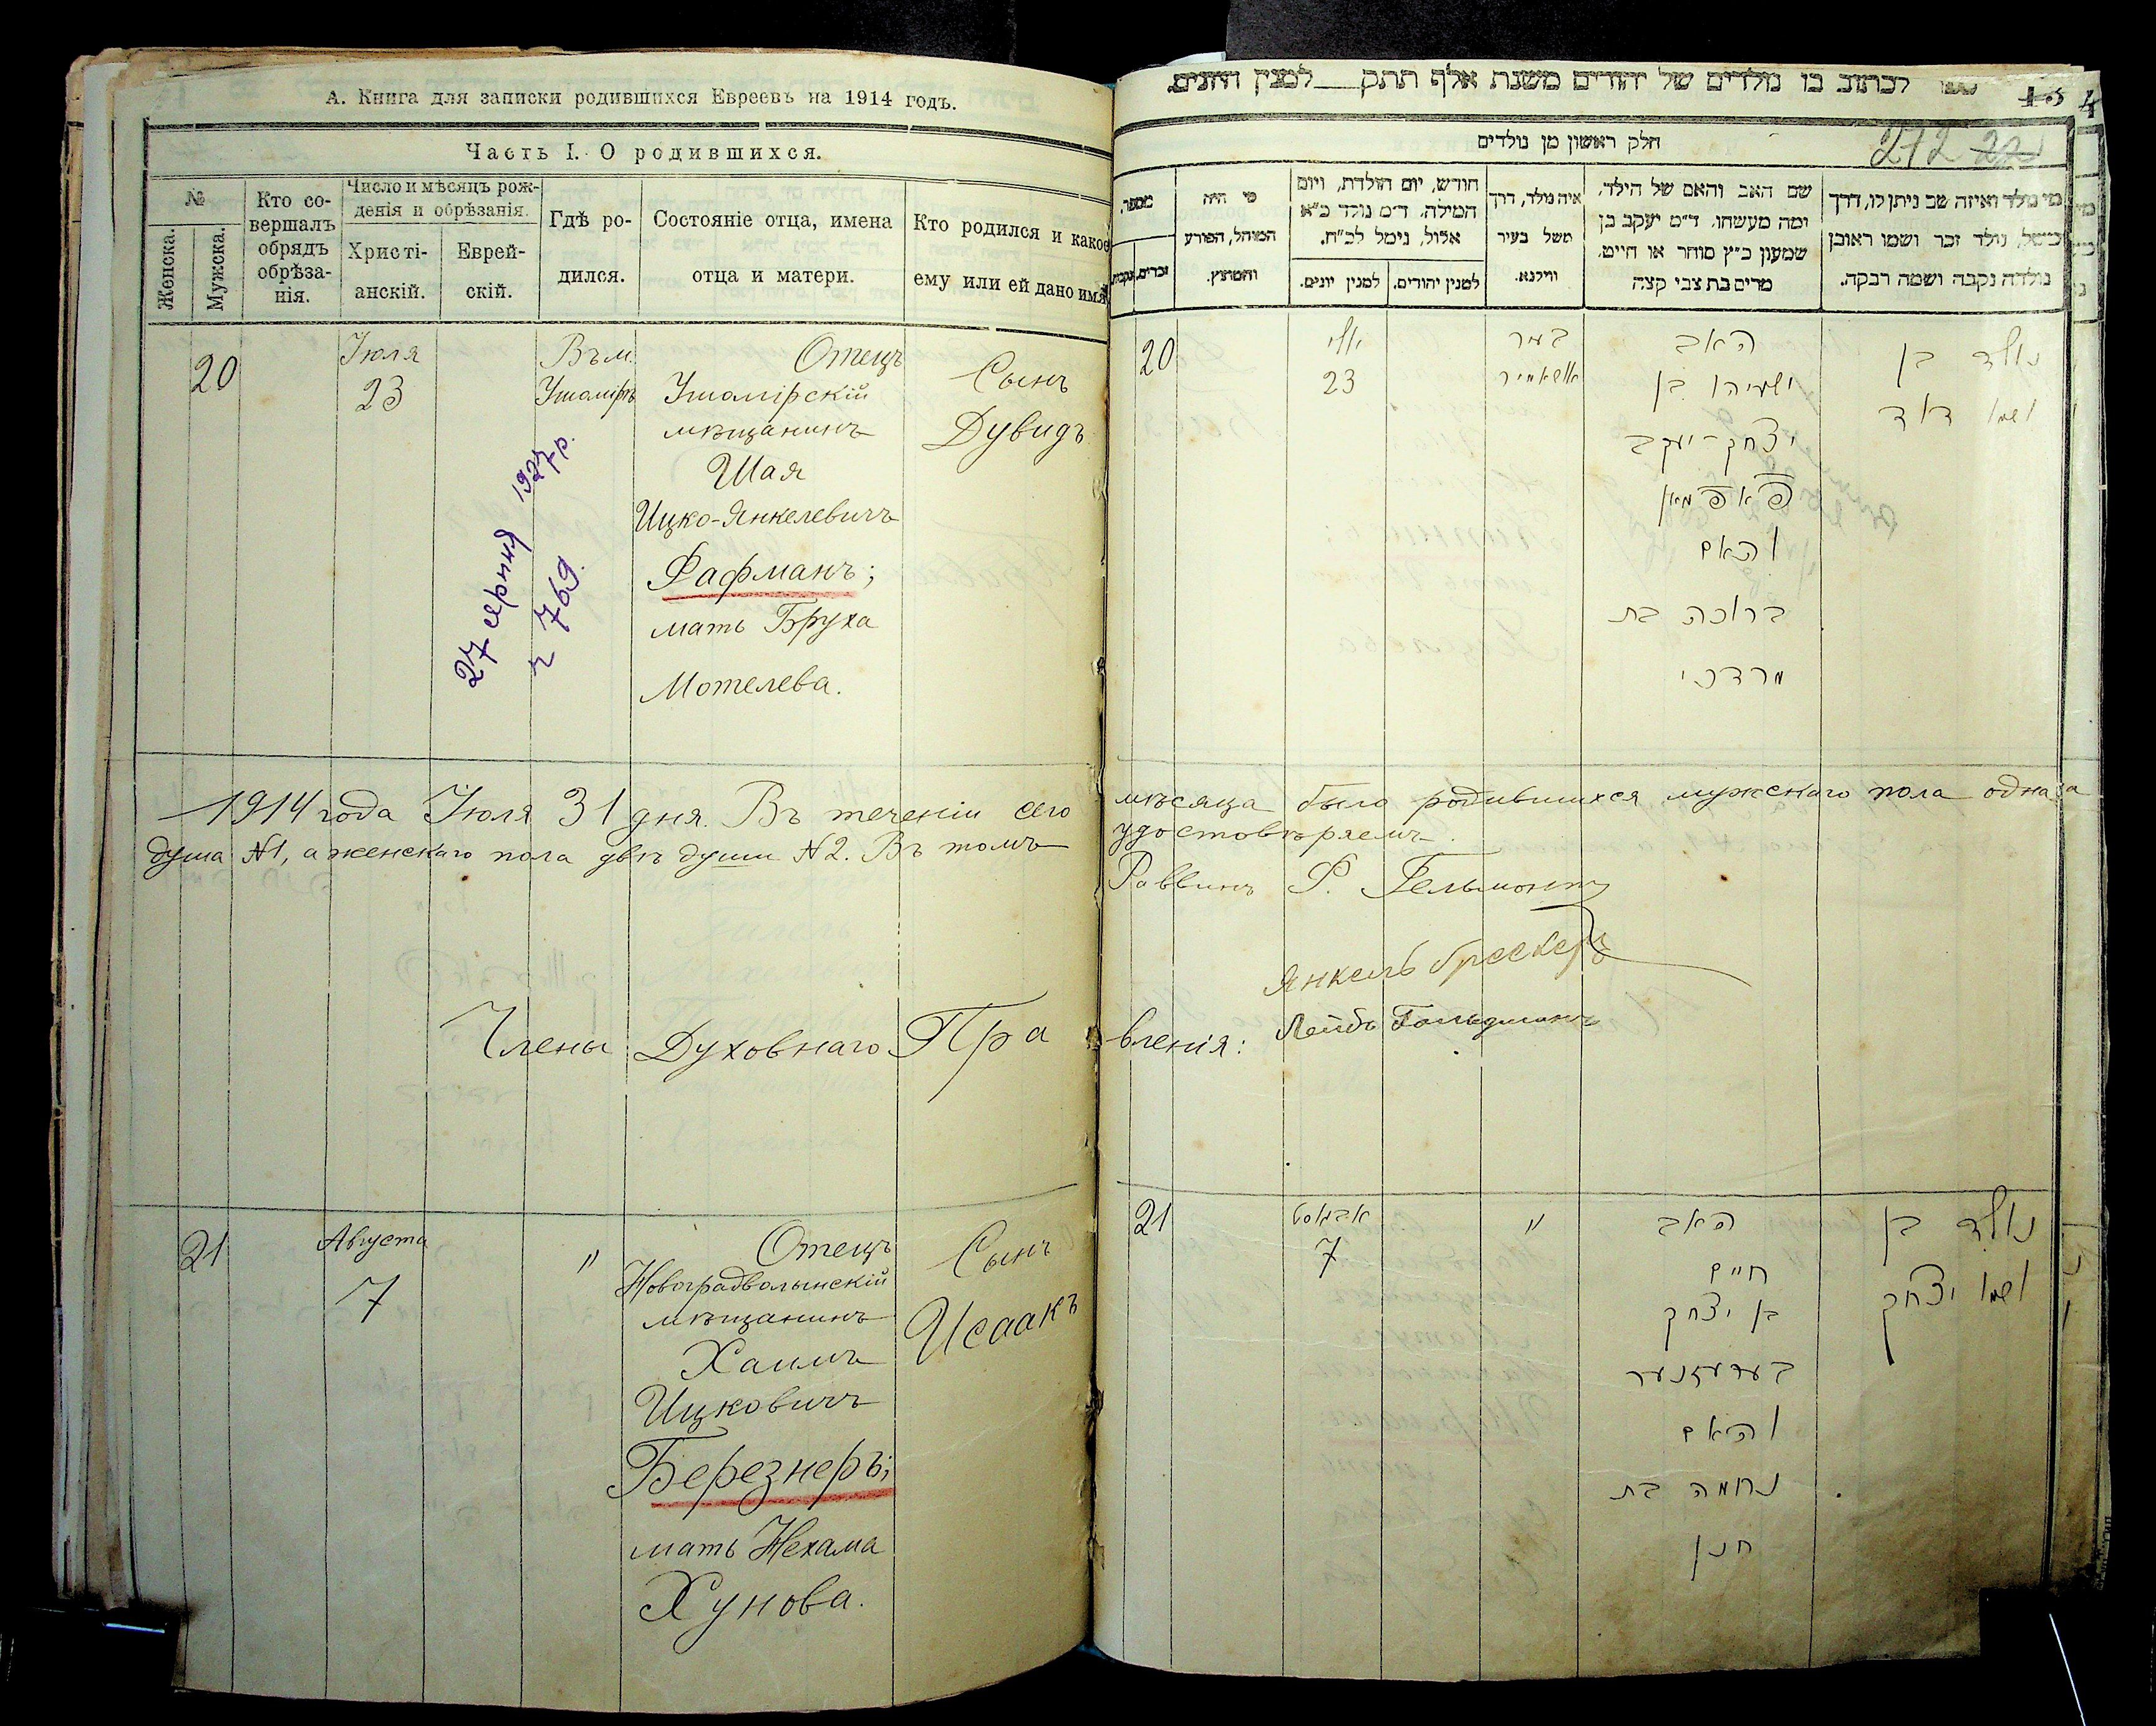 А. Книга для записки родившихся Евреевъ на 1914 годъ.
Часть I. О родившихся.
№
Женска.
Мужска.
Кто совершалъ обрядъ обрѣза-
нія.
Число и мѣсяцъ рож-
денія и обрѣзанія.
Христі-
анскій.
Еврей-
скій.
Гдѣ ро-
дился.
Состояніе отца, имена
отца и матери.
Кто родился и какое
ему или ей дано имя
20
Іюля
23
Въ м.
Ушомірѣ
Отецъ
Ушомірскій
мѣщанинъ
Шая
Ицко-Янкелевичъ
Фафманъ;
мать Бруха
Мотелева.
Сынъ
Дувидъ
27 серпня 1927 р.
ч 769.
1914 года Іюля 31 дня. Въ теченіи сего
душа №1, а женскаго пола двѣ души №2. Въ томъ
Члены Духовнаго Пра
21
Августа
7
"
Отецъ
Новоградволынскій
мѣщанинъ
Хаимъ
Ицковичъ
Березнеръ;
мать Нехама
Хунова.
Сынъ
Исаакъ
לכתוב בו נולדים של יהודים משנת אלף תתק למנין היונים.
272
חלק ראשון מן נולדים
מספר,
זכרים,
נקבות
מי היה
המוהל, הפורע
והמוצץ.
חודש, יום הולדת, ויום
המילה. ד״מ נולד כ״א
אלול, נימל לכ״ח.
למנין יונים.
למנין יהודים.
איה נולד, דרך
משל בעיר
ווילנא.
שם האב והאם של הילד,
ומה מעשהו. ד״מ יעקב בן
שמעון כ״ץ סוחר או חייט,
מרים בת צבי קצה
מי נולד ואיזה שב ניתן לו, דרך
משל, נולד זכר ושמו ראובן
נולדה נקבה ושמה רבקה.
20
יולי
23
בעיר
אושאמיר
האב
ישעיהו בן
יצחק-יעקב
פאפמאן
והאם
ברוכה בת
מרדכי
נולד בן
ושמו דוד
мѣсяца было родившихся мужскаго пола одна
удостовѣряемъ.
Раввинъ Р. Гельмонтъ
Янкель
вленія: Лейбъ Гольдманъ
21
אבגוסט
7
"
האב
חיים
בן יצחק
בערעזנער
והאם
נחמה בת
חנן
נולד בן
ושמו יצחק